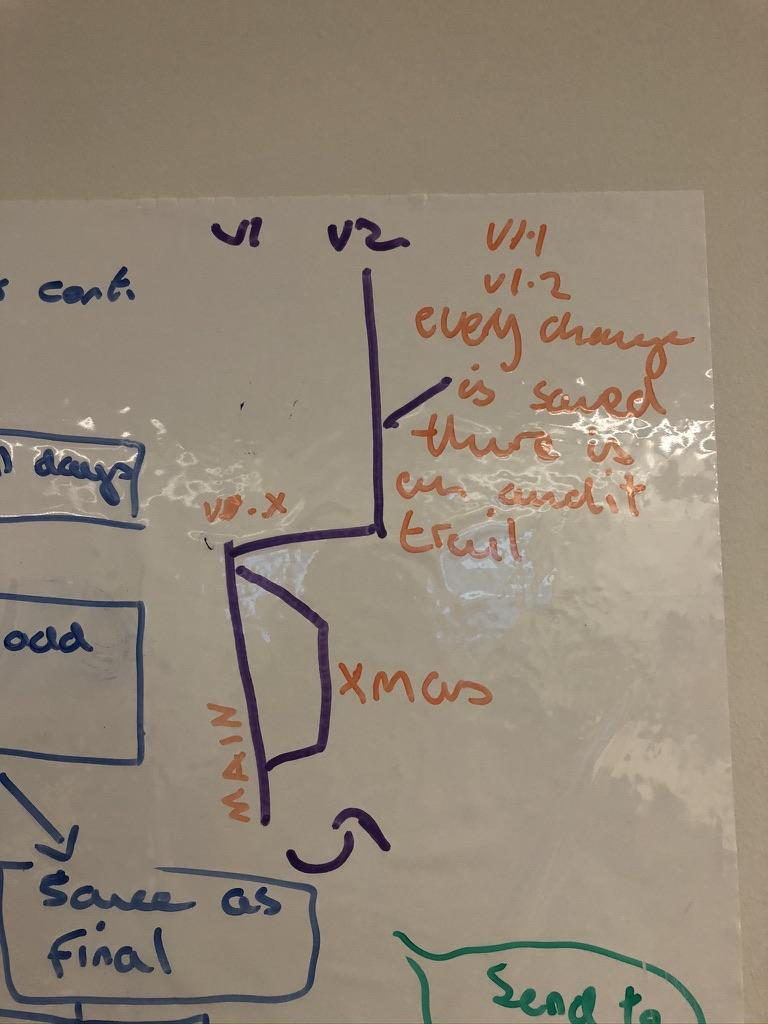 V1 V2
V1.1
V1.2
cont.
every change
is saved
there is
an audit
trail
days
add
XMas
MAIN
Save as
final
Send to